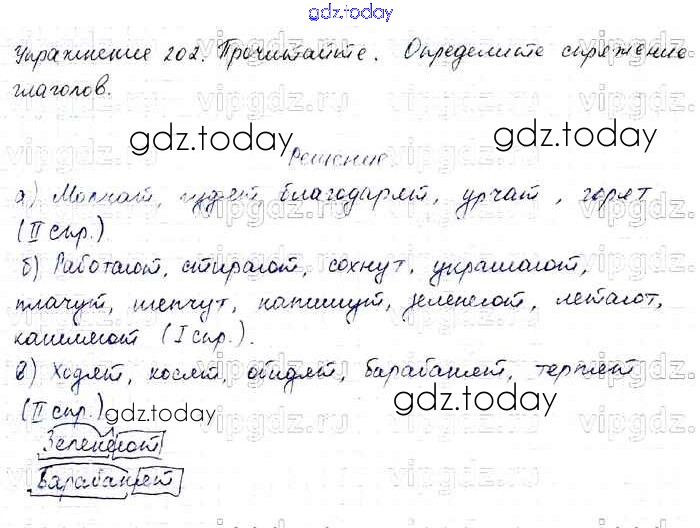 gdz.today
Упражнение 202. Прочитайте. Определите спряжение
глаголов.
gdz.today gdz.today
Решение
а) Молчат, гудят, благодарят, урчат, горят
(II спр.)
б) Работают, стирают, сохнут, украшают,
плачут, шепчут, напишут, зеленеют, летают,
капляют (I спр.).
в) Ходят, косят, обидят, барабанят, терпят
(II спр.)
gdz.today gdz.today
Зеленеют
Барабанят